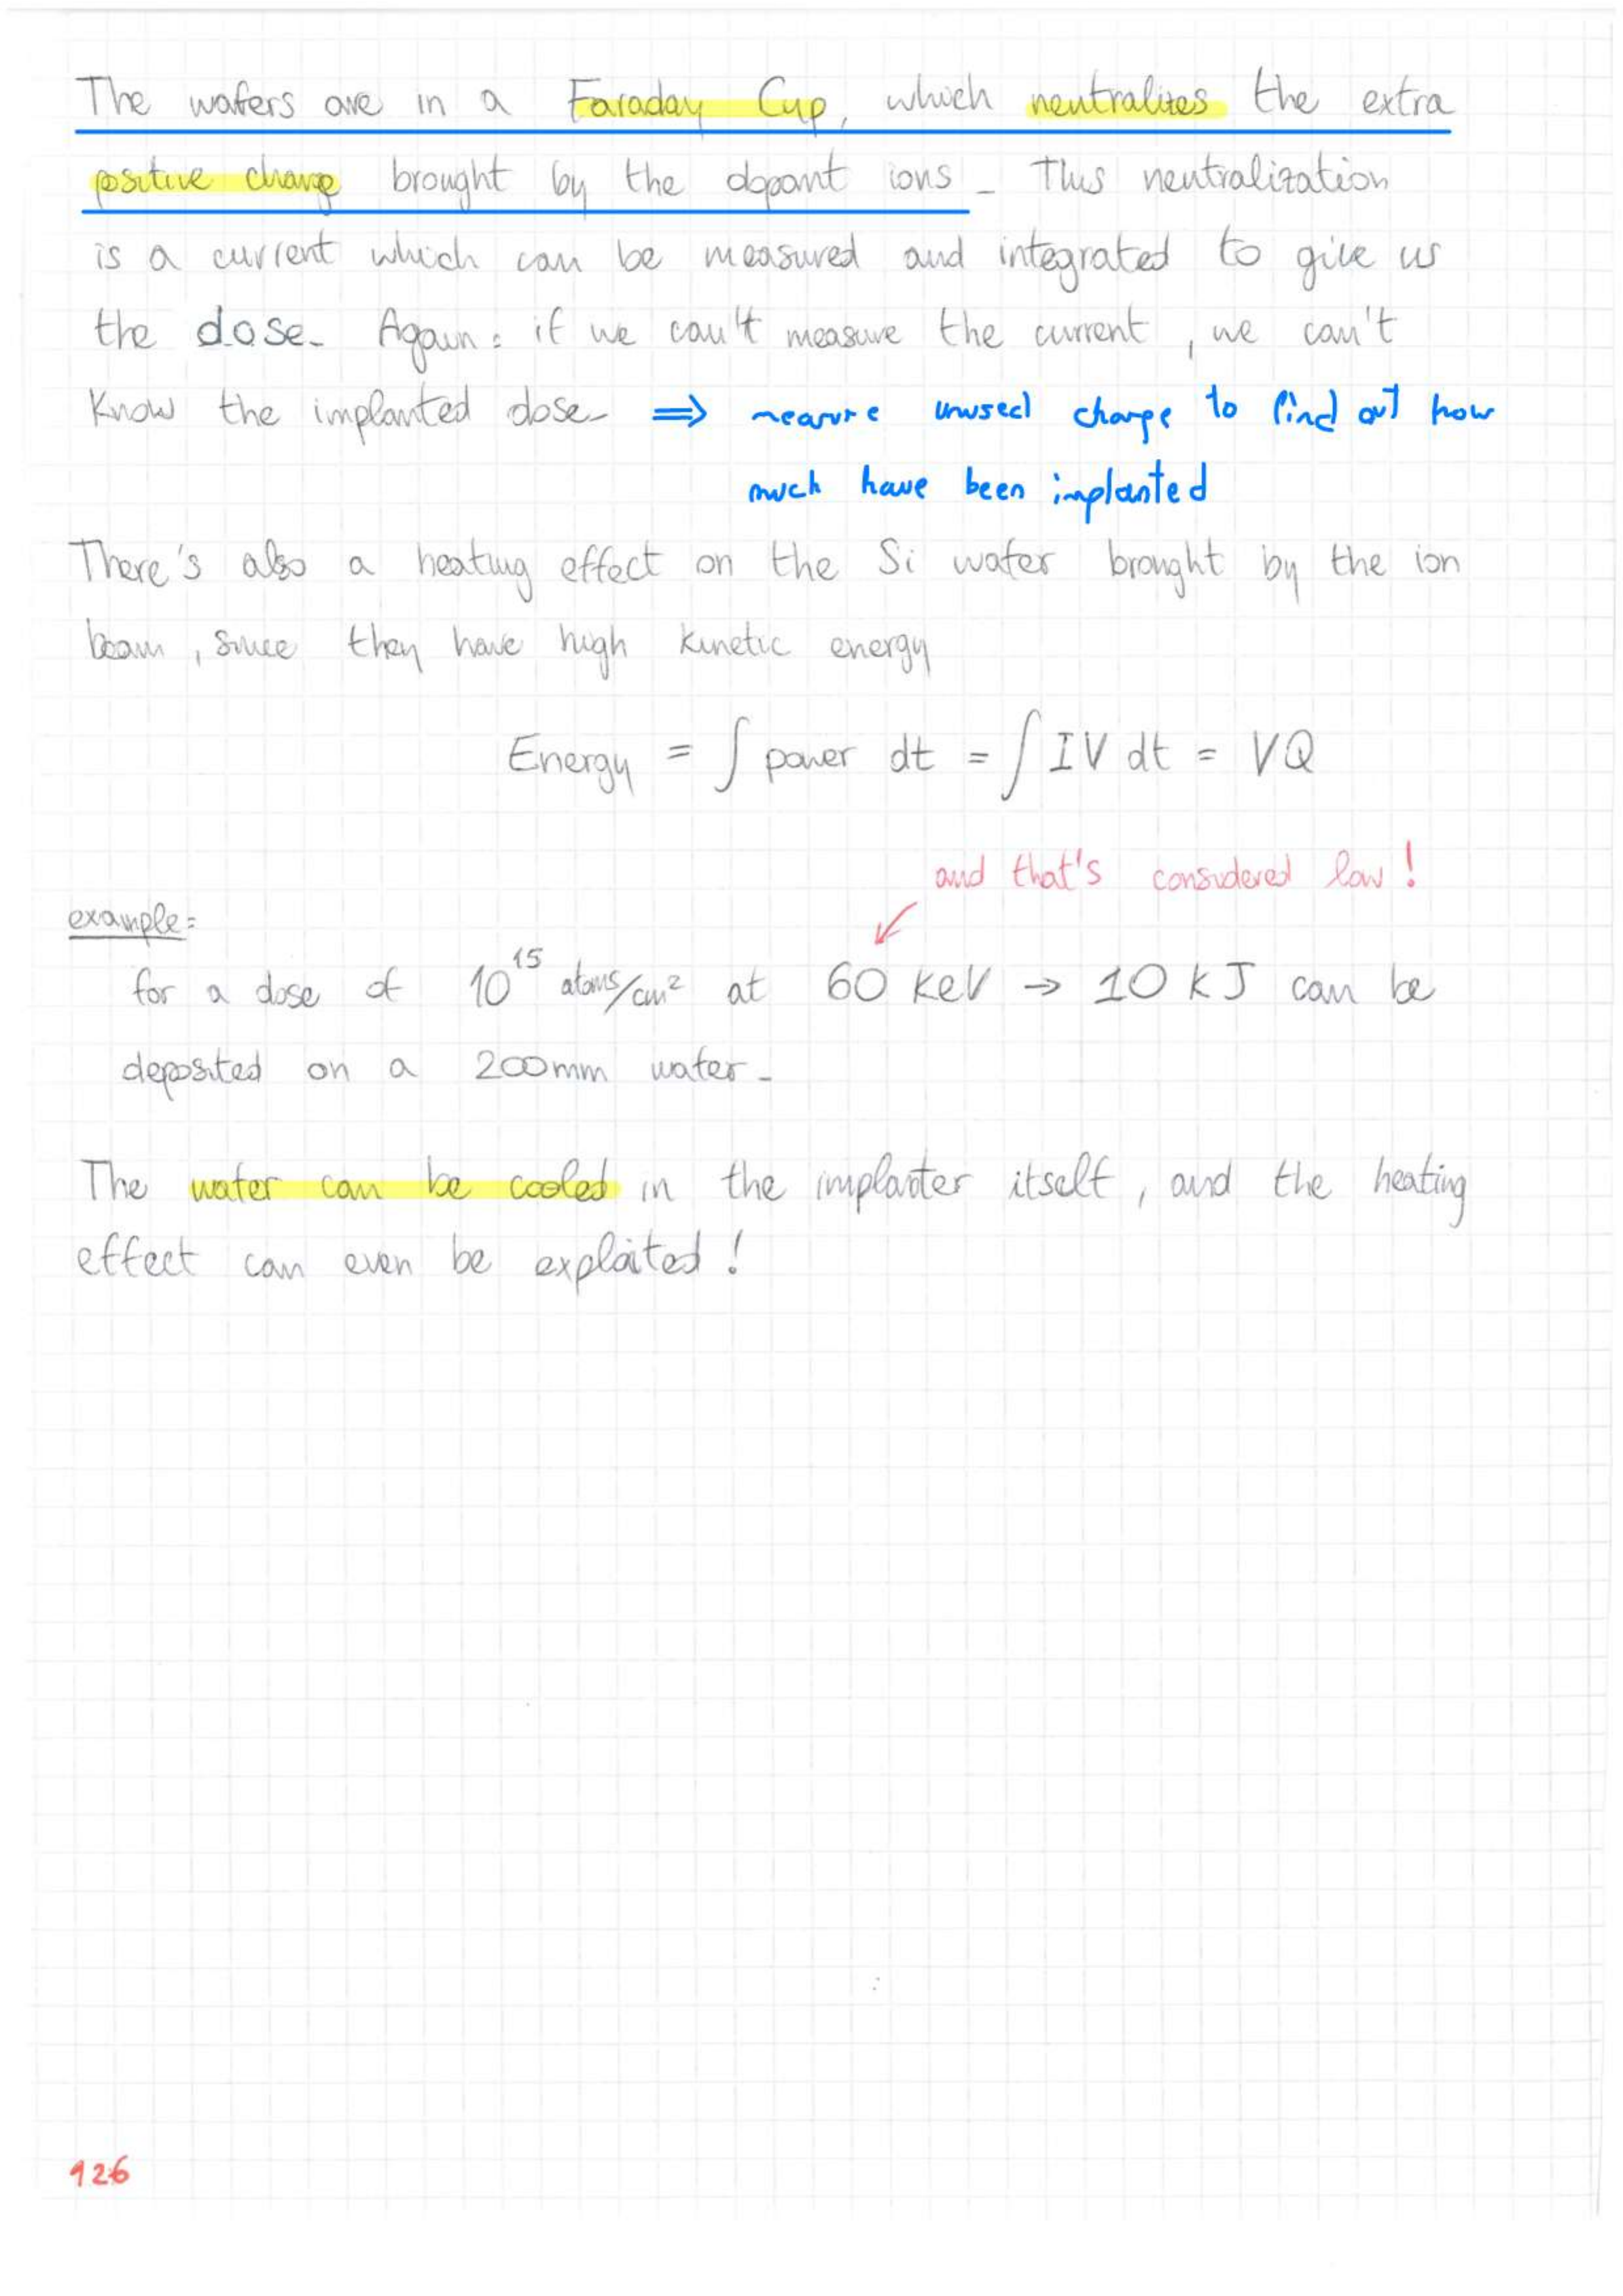 The wafers are in a Faraday Cup, which neutralizes the extra
positive charge brought by the dopant ions. This neutralization
is a current which can be measured and integrated to give us
the dose. Again: if we can't measure the current, we can't
know the implanted dose. ⇒ measure unused charge to find out how
much have been implanted
There's also a heating effect on the Si wafer brought by the ion
beam, since they have high kinetic energy
Energy = ∫ power dt = ∫ IV dt = VQ
and that's considered low!
example:
for a dose of 10¹⁵ atoms/cm² at 60 keV → 10 kJ can be
deposited on a 200mm wafer.
The wafer can be cooled in the implanter itself, and the heating
effect can even be exploited!
126